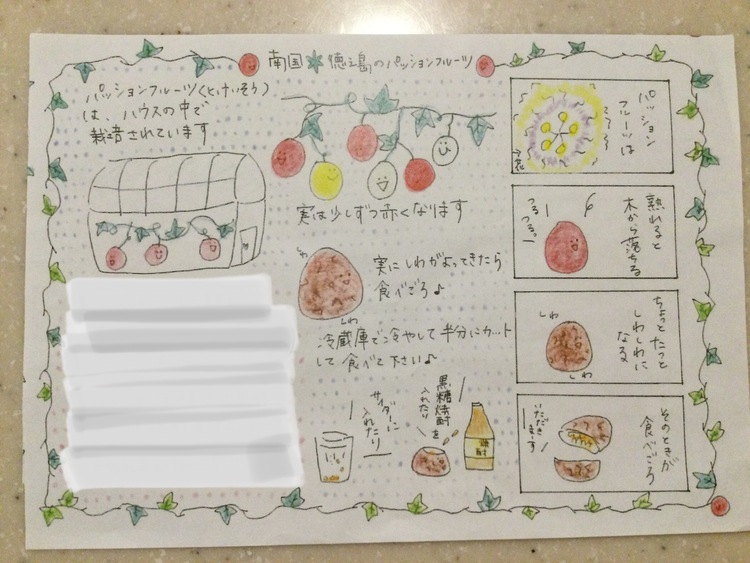 南国徳之島のパッションフルーツ
パッションフルーツ(とけいそう)
は、ハウスの中で
栽培されています
実は少しずつ赤くなります
しわ
実にしわがよってきたら
食べごろ♪
しわ
冷蔵庫で冷やして半分にカット
して食べて下さい♪
サイダーに
入れたり
黒糖焼酎を
入れたり
焼酎
パッション
フルーツは
熟れると
木から落ちる
つるつるー
ちょっとたつと
しわしわに
なる
しわ
しわ
そのときが
食べごろ
いただきまーす